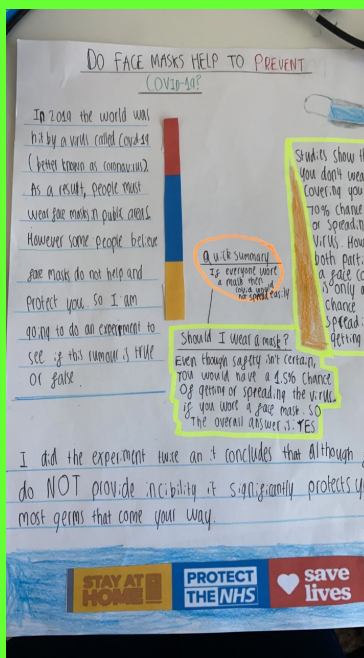 DO FACE MASKS HELP TO PREVENT
COVID-19?
In 2019 the world was
hit by a virus called Covid19
(better known as coronavirus).
As a result, people must
wear face masks in public areas.
However some people believe
face masks do not help and
protect you. So I am
going to do an experiment to
see if this rumour is true
or false.
Quick summary
If everyone wore
a mask then
covid would
not spread easily
Studies show th
you don't wea
covering you
70% chance
or spreadin
virus. How
both part
a face co
is only a
chance
spreadi
getting
Should I wear a mask?
Even though safety isn't certain,
you would have a 1.5% chance
Of getting or spreading the virus
if you wore a face mask. So
The overall answer is: YES
I did the experiment twice an it concludes that Although
do NOT provide incibility it significantly protects y
most germs that come your way.
STAY AT
HOME
PROTECT
THE NHS
save
lives